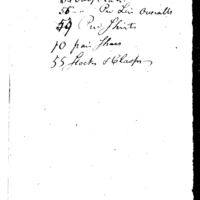 55 -- Pr Lin Overalls
59 Pr Shirts
10 pair Shoes
55 Stocks & Clasps